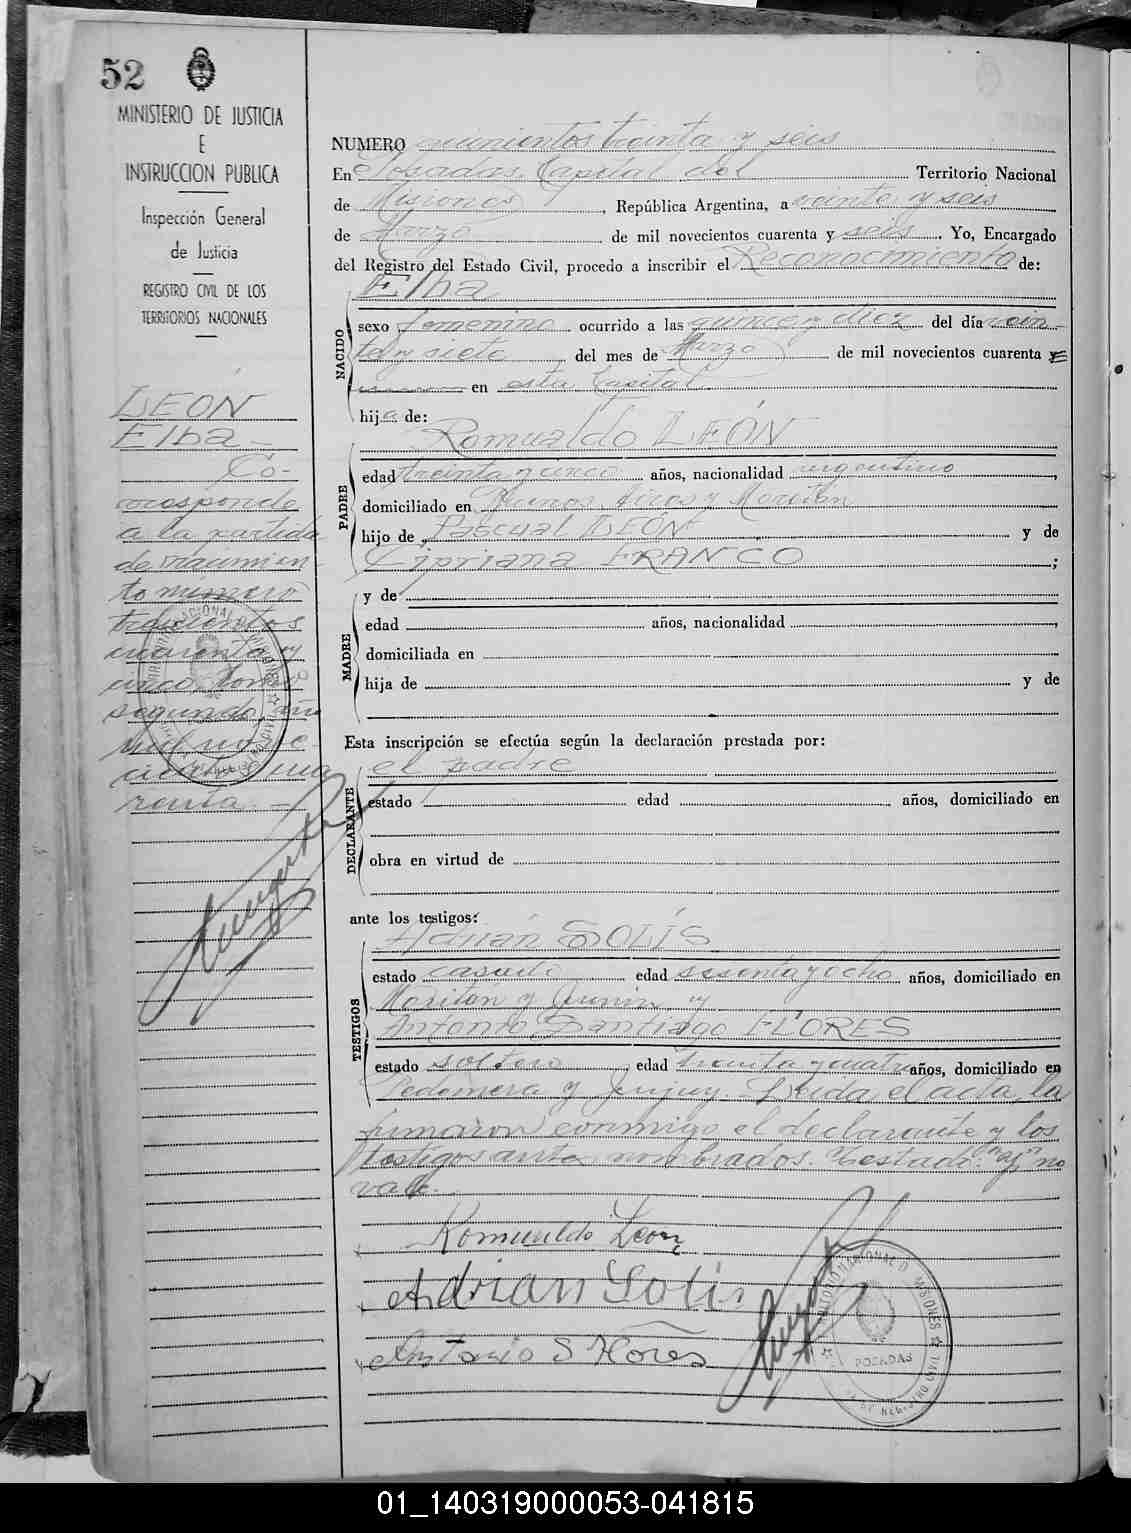 52
MINISTERIO DE JUSTICIA
E
INSTRUCCION PUBLICA
Inspección General
de Justicia
REGISTRO CIVIL DE LOS
TERRITORIOS NACIONALES
LEÓN
Elba -
Co-
rresponde
a la partida
de nacimien-
to número
trescientos
cuarenta y
cinco, tomo
segundo, año
mil nove-
cientos cua-
renta. -
NUMERO quinientos treinta y seis
En Posadas, Capital del Territorio Nacional
de Misiones, República Argentina, a veinte y seis
de Marzo de mil novecientos cuarenta y seis. Yo, Encargado
del Registro del Estado Civil, procedo a inscribir el Reconocimiento de:
Elba
NACIDO
sexo femenino ocurrido a las quince y diez del día vein-
te y siete del mes de Marzo de mil novecientos cuarenta y
en esta Capital
hija de:
Romualdo LEÓN
PADRE
edad treinta y cinco años, nacionalidad argentino,
domiciliado en Buenos Aires y Moritán
hijo de Pascual LEÓN y de
Cipriana FRANCO;
MADRE
y de
edad años, nacionalidad
domiciliada en
hija de y de
Esta inscripción se efectúa según la declaración prestada por:
el padre
DECLARANTE
estado edad años, domiciliado en
obra en virtud de
ante los testigos:
Adrián SOLÍS
TESTIGOS
estado casado edad sesenta y ocho años, domiciliado en
Moritán y Junín, y
Antonio Santiago FLORES
estado soltero edad treinta y cuatro años, domiciliado en
Pedernera y Jujuy. - Leída el acta, la
firmaron conmigo el declarante y los
testigos antes nombrados. Testado: "y" no
vale.
Romualdo Leon
Adrian Solis
Antonio S Flores
POSADAS
01_140319000053-041815